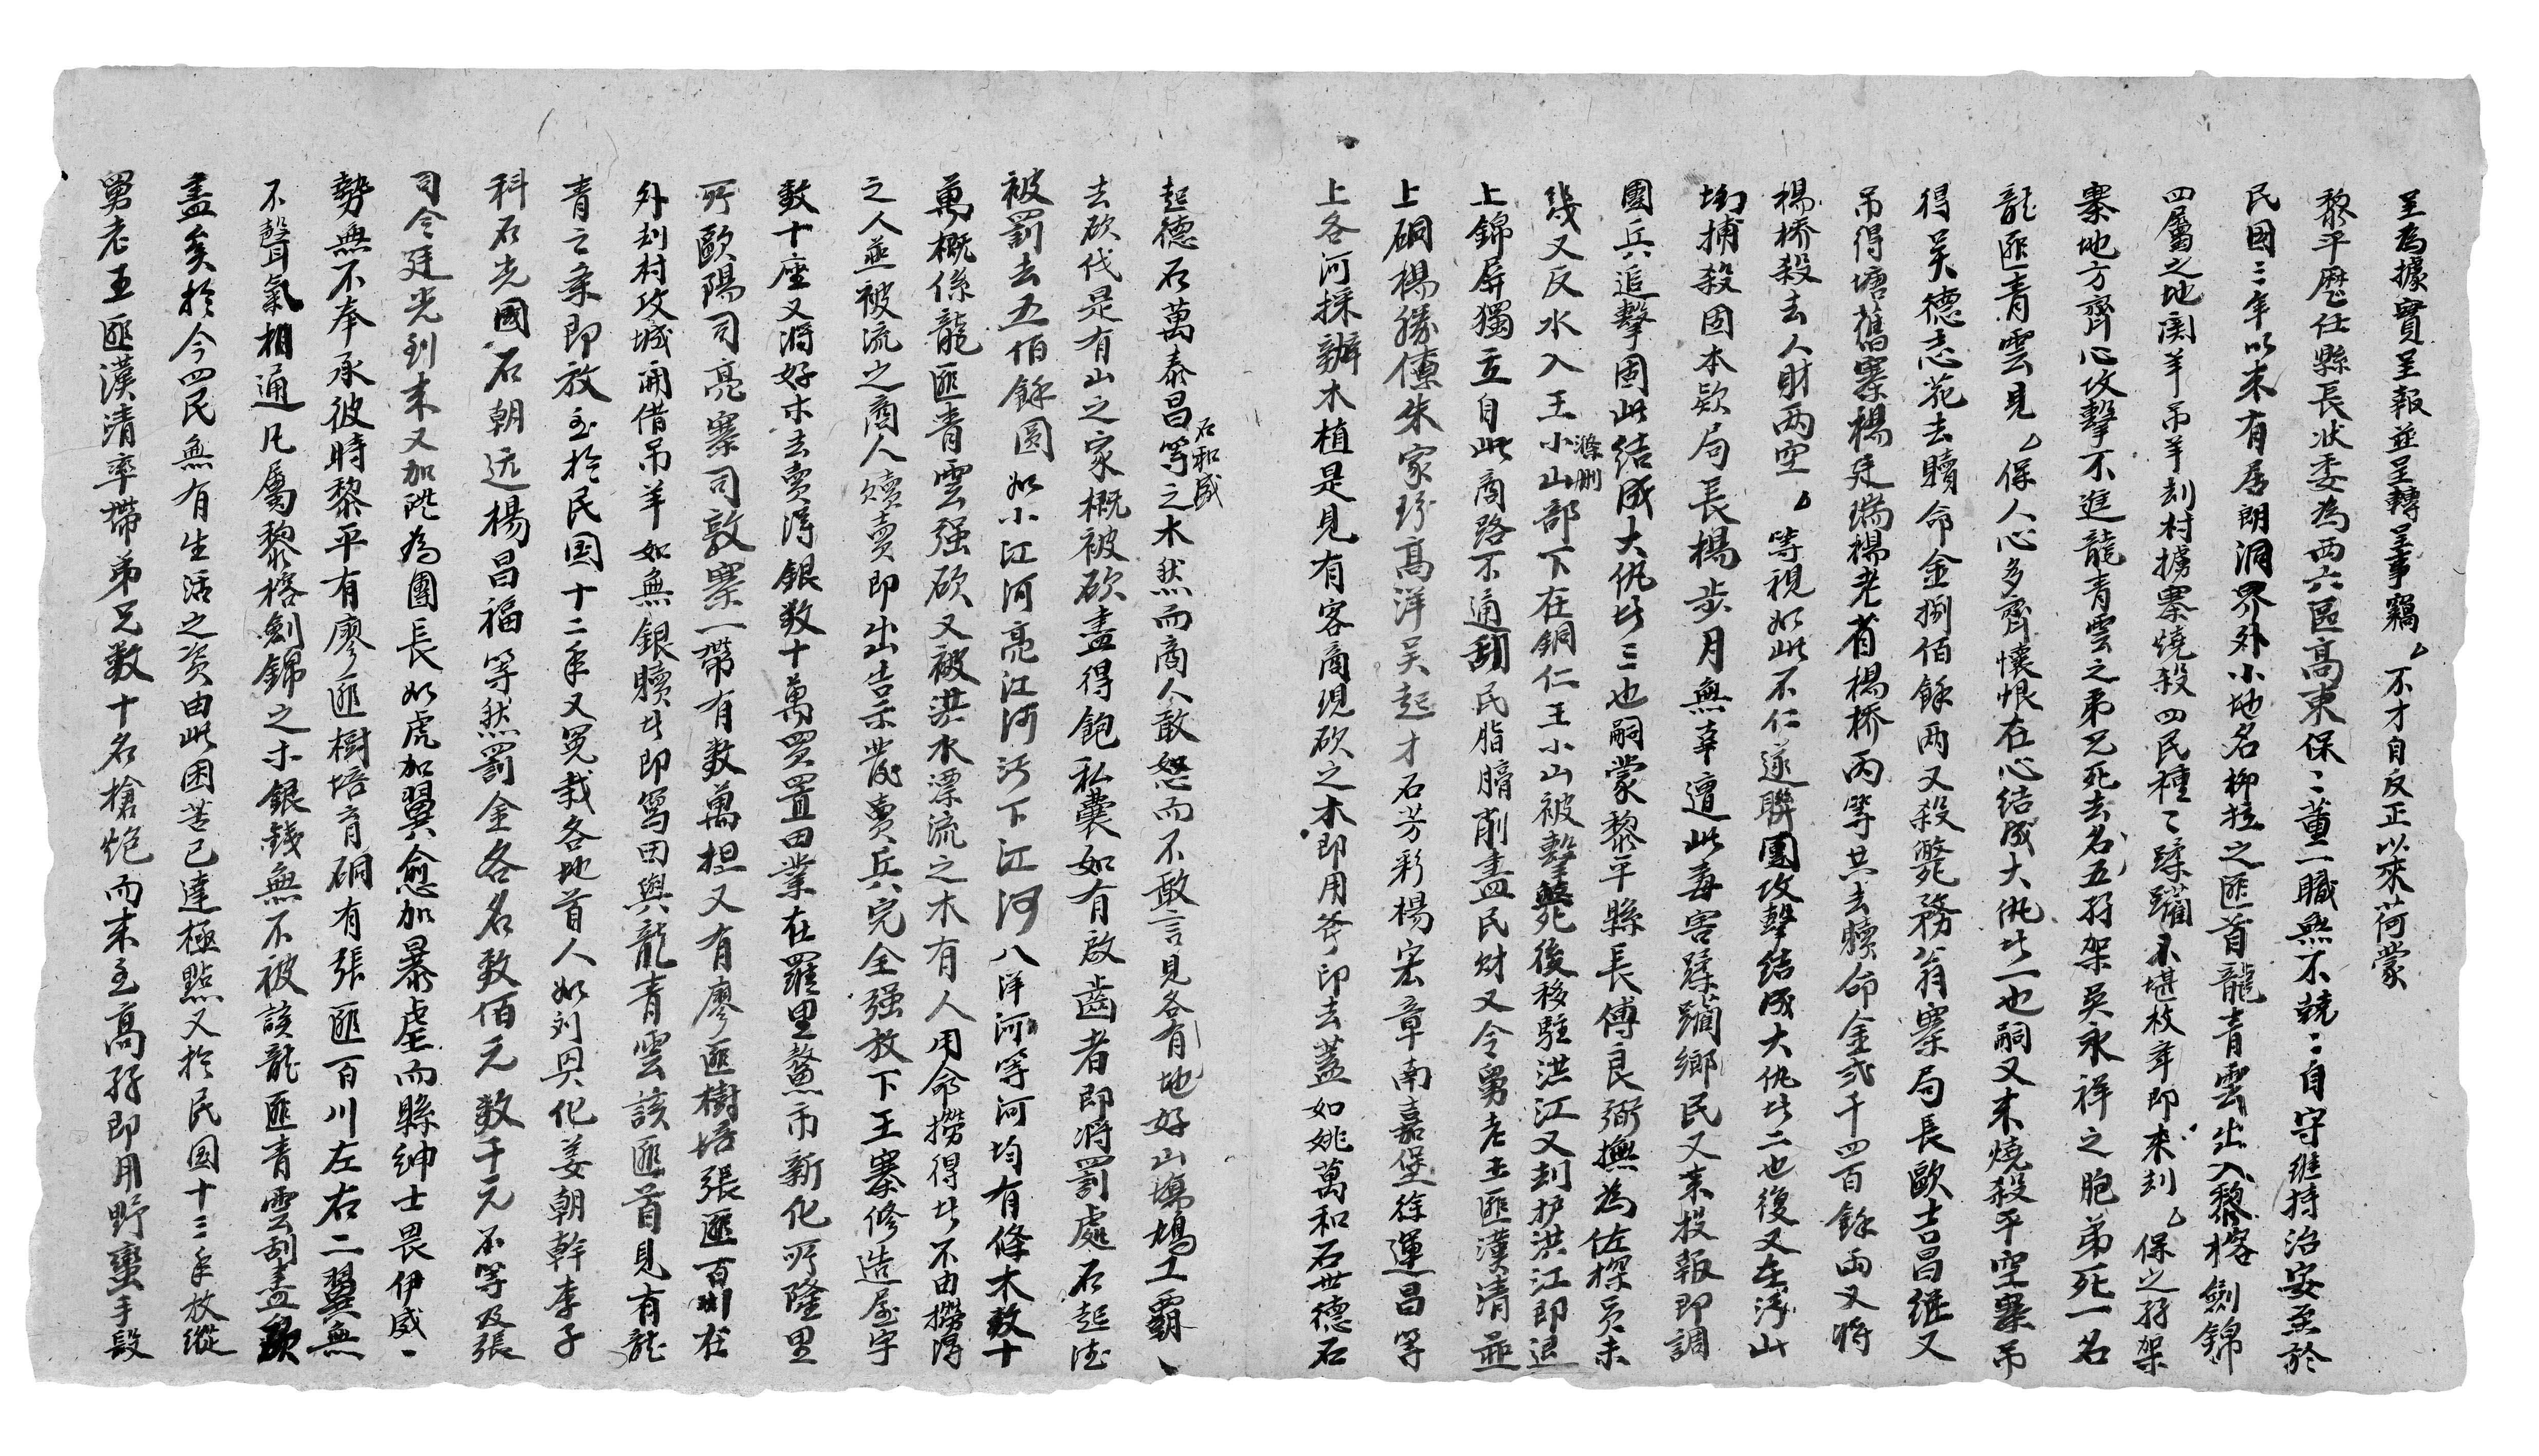 呈為據實呈報並呈轉呈事竊厶不才自反正以來荷蒙
黎平歷任縣長狀委為兩六區高東保二董一職無不兢二自守維持治安至於
民國三年以來有居朗洞界外小地名柳拉之匪首龍青雲出入黎榕劍錦
四屬之地関羊吊羊刦村擄寨燒殺四民種二蹂躪不堪枚年即來刦厶保之孖架
寨地方齊心攻擊不進龍青雲之弟兄死去名五孖架吳永祥之胞弟死一名
龍匪青雲見厶保人心多齊懷恨在心結成大仇此一也嗣又來燒殺平空寨吊
得吳德志花去贖命金捌佰餘兩又殺斃務翁寨局長歐吉昌繼又
吊得塘舊寨楊廷瑞楊老省楊橋丙等共去贖命金弍千四百餘両又將
楊橋殺去人財兩空厶等視如此不仁遂聯團攻擊結成大仇此二也復又在
捕殺固本欵局長楊步月無辜遭此毒害蹂躪鄉民又來投報即調
團兵追擊固此結成大仇此三也嗣蒙黎平縣長傅良弼撫為佐探员未
幾又反水入王小山部下在銅仁王小山被擊斃後移駐洪江又刦护洪江即退
滌刪
上錦屏獨立自此商路不通刮民脂膏削盡民财又令舅老王匪漢清並
上硐楊勝傳朱家珍高洋吴起才石芳彩楊宏章南嘉堡徐運昌等
上各河採辦木植是見有客商現砍之木即用斧印去蓋如姚萬和石世德石
起德石萬泰昌等之木然而商人敢怒而不敢言見各有地好山塲鳩工霸
石和成
去砍伐是有山之家概被砍盡得飽私囊如有啟齒者即將罰處石起法
被罰去五佰餘圆如小江河亮江河污下江河八洋河等河均有條木数十
萬概係龍匪青雲强砍又被洪水漂流之木有人用命撈得此不由撈得
之人並被流之商人贖賣即出告示發賣兵完全强放下王寨修造屋宇
数十座又將好木去賣得銀数十萬買置田業在羅里鰲市新化所隆里
所歐陽司亮寨司敦寨一帶有数萬担又有廖匪樹培張匪百川在
外刦村攻城開借吊羊如無銀贖此即寫田與龍青雲該匪首見有龍
青云來即放至於民国十二年又冤栽各地首人如刘興化姜朝幹李子
科石光國石朝远楊昌福等然罰金各名数佰元数千元不等及張
司令廷光到來又加陞為團長如虎加翼愈加暴虐而縣紳士畏伊威
勢無不奉承彼時黎平有廖匪樹培育硐有張匪百川左右二翼無
不聲氣相通凡屬黎榕劍錦之木銀錢無不被該龍匪青雲刮盡
盡矣於今四民無有生活之资由此困苦已達極點又於民国十三年放縱
舅老王匪漢清率帶弟兄数十名槍炮而來至高孖即用野蠻手段